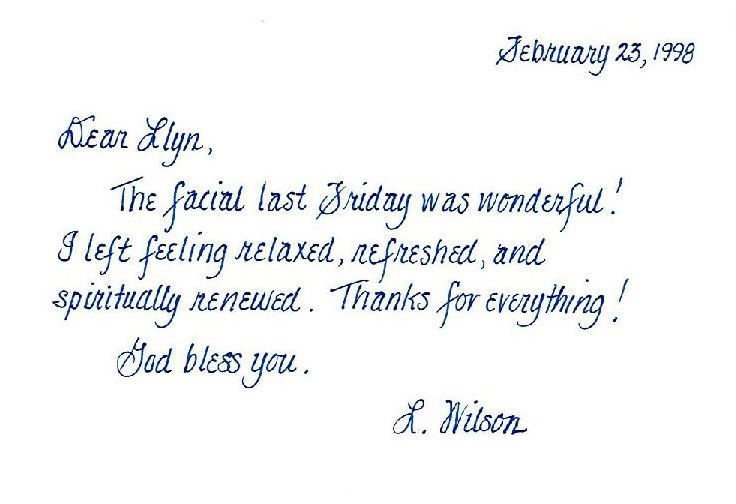 February 23, 1998
Dear Llyn,
The facial last Friday was wonderful!
I left feeling relaxed, refreshed, and
spiritually renewed. Thanks for everything!
God bless you.
L. Wilson